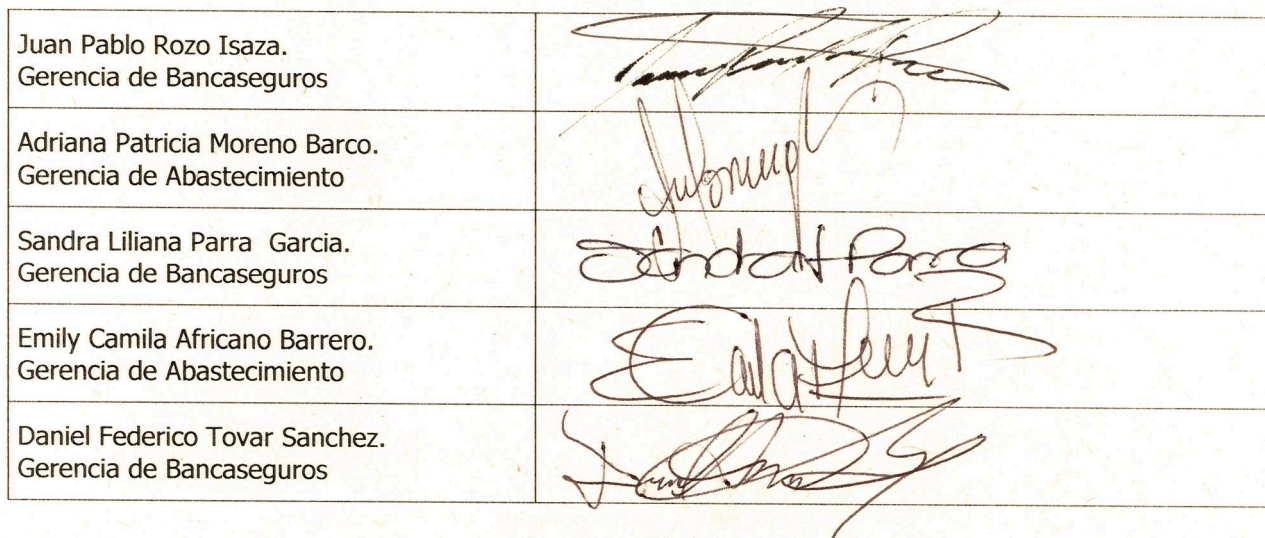 Juan Pablo Rozo Isaza.
Gerencia de Bancaseguros
Adriana Patricia Moreno Barco.
Gerencia de Abastecimiento
Sandra Liliana Parra Garcia.
Gerencia de Bancaseguros
Parra
Emily Camila Africano Barrero.
Gerencia de Abastecimiento
Daniel Federico Tovar Sanchez.
Gerencia de Bancaseguros